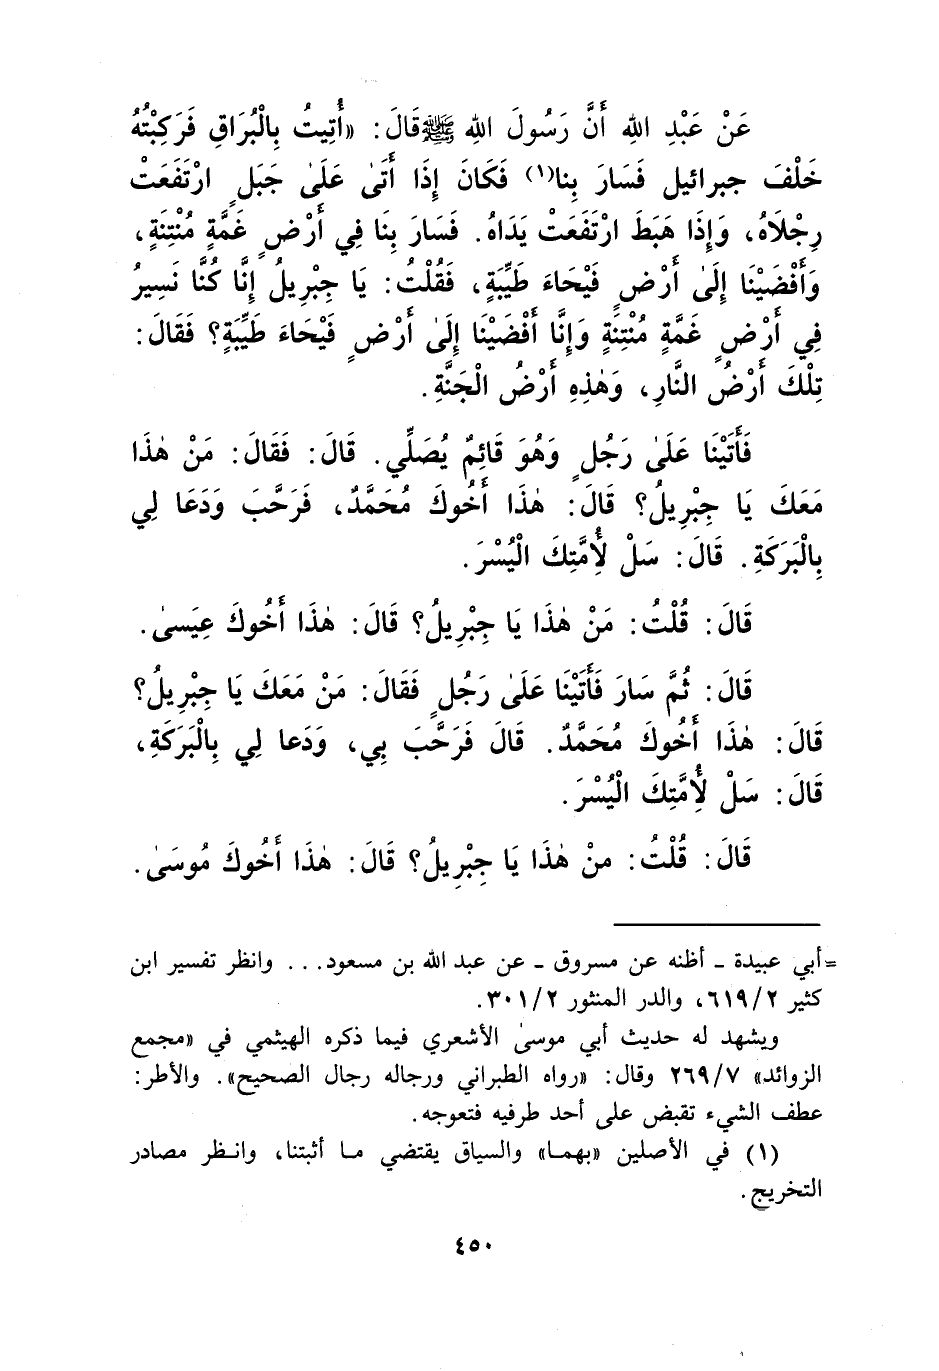 عَنْ عَبْدِ اللهِ أَنَّ رَسُولَ اللهِ ﷺ قَالَ: «أُتِيتُ بِالْبُرَاقِ فَرَكِبْتُهُ
خَلْفَ جبرائيل فَسَارَ بِنا(١) فَكَانَ إِذَا أَتَىٰ عَلَىٰ جَبَلٍ ارْتَفَعَتْ
رِجْلَاهُ، وَإِذَا هَبَطَ ارْتَفَعَتْ يَدَاهُ. فَسَارَ بِنَا فِي أَرْضٍ غَمَّةٍ مُنْتِنَةٍ،
وَأَفْضَيْنَا إِلَىٰ أَرْضٍ فَيْحَاءَ طَيِّبَةٍ، فَقُلْتُ: يَا جِبْرِيلُ إِنَّا كُنَّا نَسِيرُ
فِي أَرْضٍ غَمَّةٍ مُنْتِنَةٍ وَإِنَّا أَفْضَيْنَا إِلَىٰ أَرْضٍ فَيْحَاءَ طَيِّبَةٍ؟ فَقَالَ:
تِلْكَ أَرْضُ النَّارِ، وَهٰذِهِ أَرْضُ الْجَنَّةِ.
فَأَتَيْنَا عَلَىٰ رَجُلٍ وَهُوَ قَائِمٌ يُصَلِّي. قَالَ: فَقَالَ: مَنْ هٰذَا
مَعَكَ يَا جِبْرِيلُ؟ قَالَ: هٰذَا أَخُوكَ مُحَمَّدٌ، فَرَحَّبَ وَدَعَا لِي
بِالْبَرَكَةِ. قَالَ: سَلْ لأُِمَّتِكَ الْيُسْرَ.
قَالَ: قُلْتُ: مَنْ هٰذَا يَا جِبْرِيلُ؟ قَالَ: هٰذَا أَخُوكَ عِيَسىٰ.
قَالَ: ثُمَّ سَارَ فَأَتَيْنَا عَلَىٰ رَجُلٍ فَقَالَ: مَنْ مَعَكَ يَا جِبْرِيلُ؟
قَالَ: هٰذَا أَخُوكَ مُحَمَّدٌ. قَالَ فَرَحَّبَ بِي، وَدَعا لِي بِالْبَرَكَةِ،
قَالَ: سَلْ لأُِمَّتِكَ الْيُسْرَ.
قَالَ: قُلْتُ: منْ هٰذَا يَا جِبْرِيلُ؟ قَالَ: هٰذَا أَخُوكَ مُوسَىٰ.
=أبي عبيدة ـ أظنه عن مسروق ـ عن عبد الله بن مسعود... وانظر تفسير ابن
كثير ٦١٩/٢، والدر المنثور ٣٠١/٢.
ويشهد له حديث أبي موسىٰ الأشعري فيما ذكره الهيثمي في «مجمع
الزوائد» ٢٦٩/٧ وقال: «رواه الطبراني ورجاله رجال الصحيح». والأطر:
عطف الشيء تقبض على أحد طرفيه فتعوجه.
(١) في الأصلين «بهما» والسياق يقتضي ما أثبتنا، وانظر مصادر
التخريج.
٤٥٠